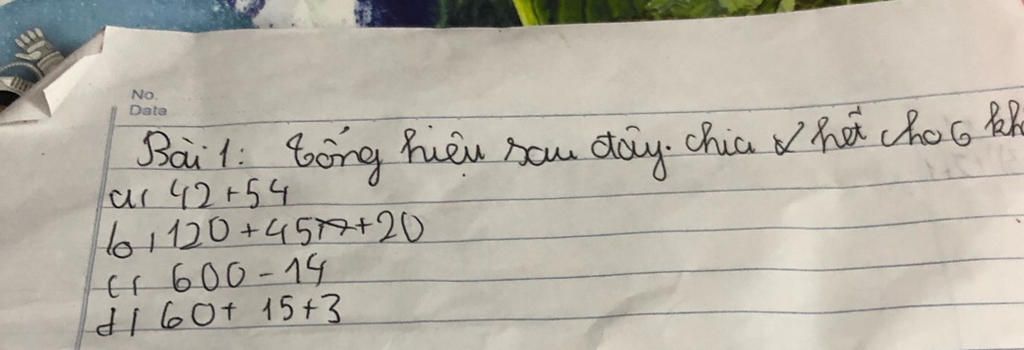 No.
Data
Bài 1: tổng hiệu sau đây. chia hết cho 6 kh
a, 42+54
b, 120+45+20
c, 600-14
d, 60+ 15+3